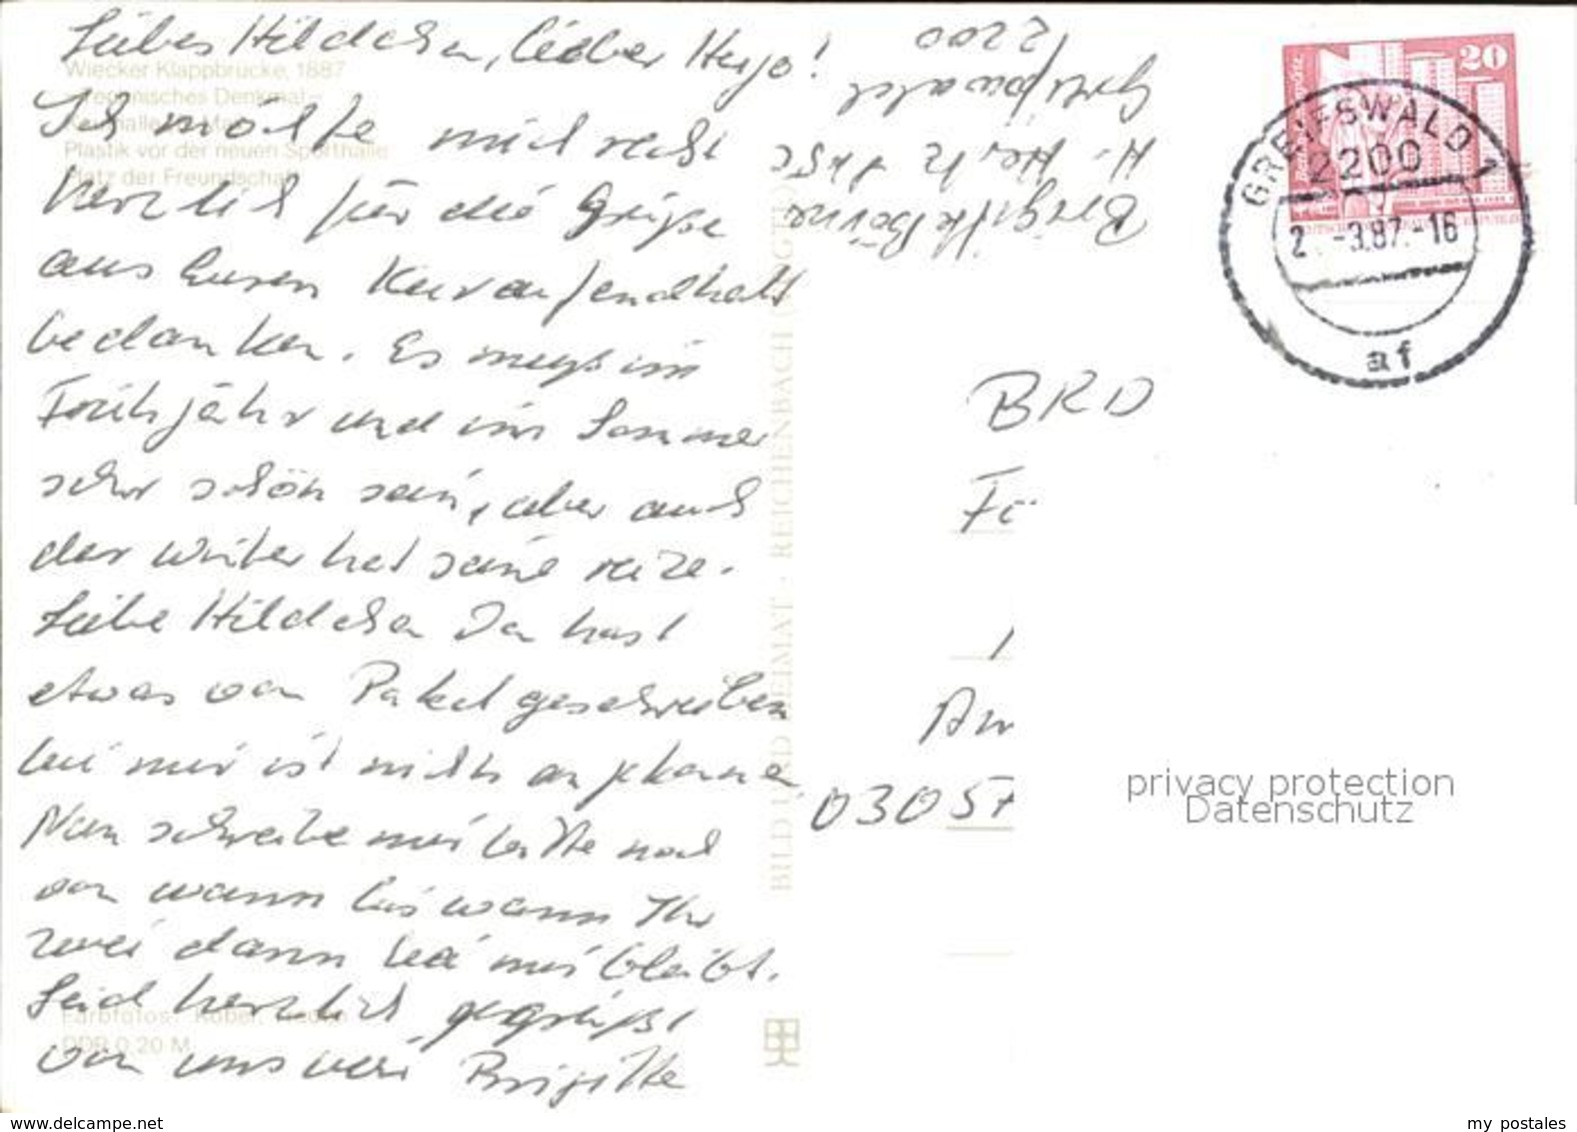 Liebes Hildchen, lieber Hujo!
Wiecker Klappbrücke, 1887
Technisches Denkmal
Ich möchte mich recht
Plastik vor der neuen Sporthalle
Platz der Freundschaft
herzlich für die Grüße
aus Euren Kuraufendhalt
bedanken. Es mags im
Frühjahr und im Sommer
sehr schön sein, aber auch
der Winter hat seine reize.
Liebe Hildchen Du hast
etwas von Paket geschrieben
bei mir ist nichts angekomme
Nun schreibe mir bitte noch
von wann bis wann Ihr
zwei dann bei mir bleibt.
Seid herzlich gegrüßt
von uns vier Brigitte
Farbfotos: Kober,
DDR 0,20 M
BILD UND HEIMAT · REICHENBACH (VOGTL)
Brigitte
H.
Greifswald
2200
20
GREIFSWALD 1
2200
2 -3.87.-16
af
BRD
03057
privacy protection
Datenschutz
www.delcampe.net
my postales